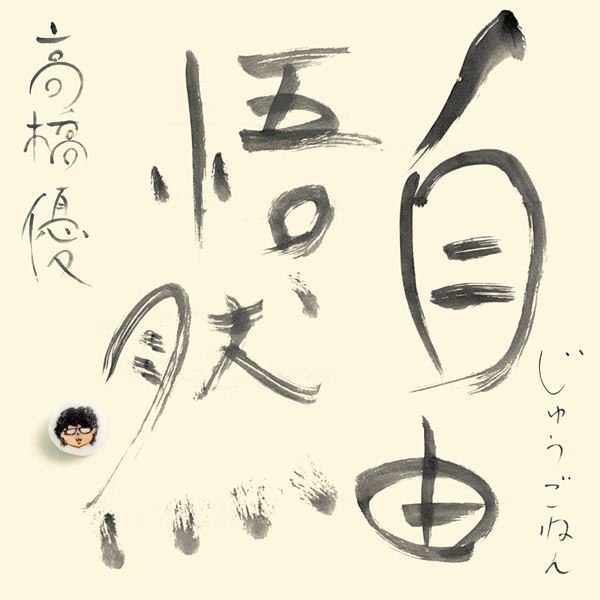 自由
悟然
じゆうごねん
高橋優